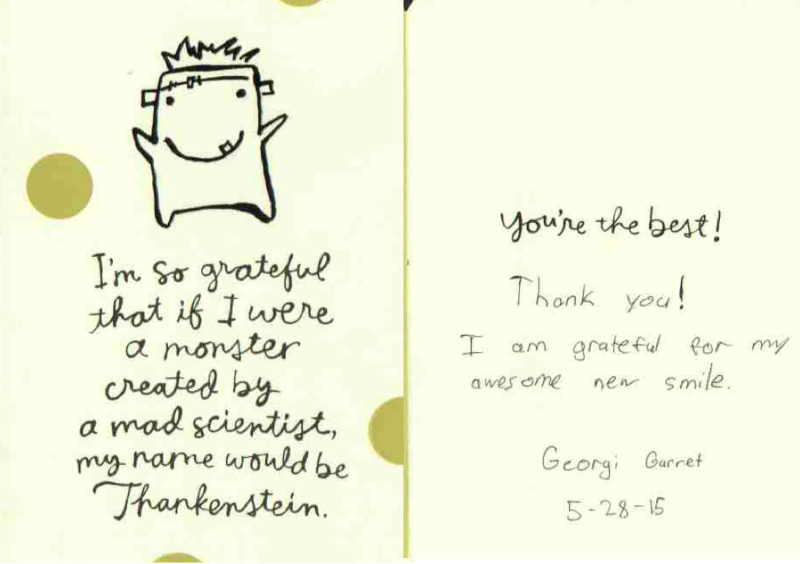 I'm so grateful
that if I were
a monster
created by
a mad scientist,
my name would be
Thankenstein.
You're the best!
Thank you!
I am grateful for my
awesome new smile.
Georgi Garret
5-28-15